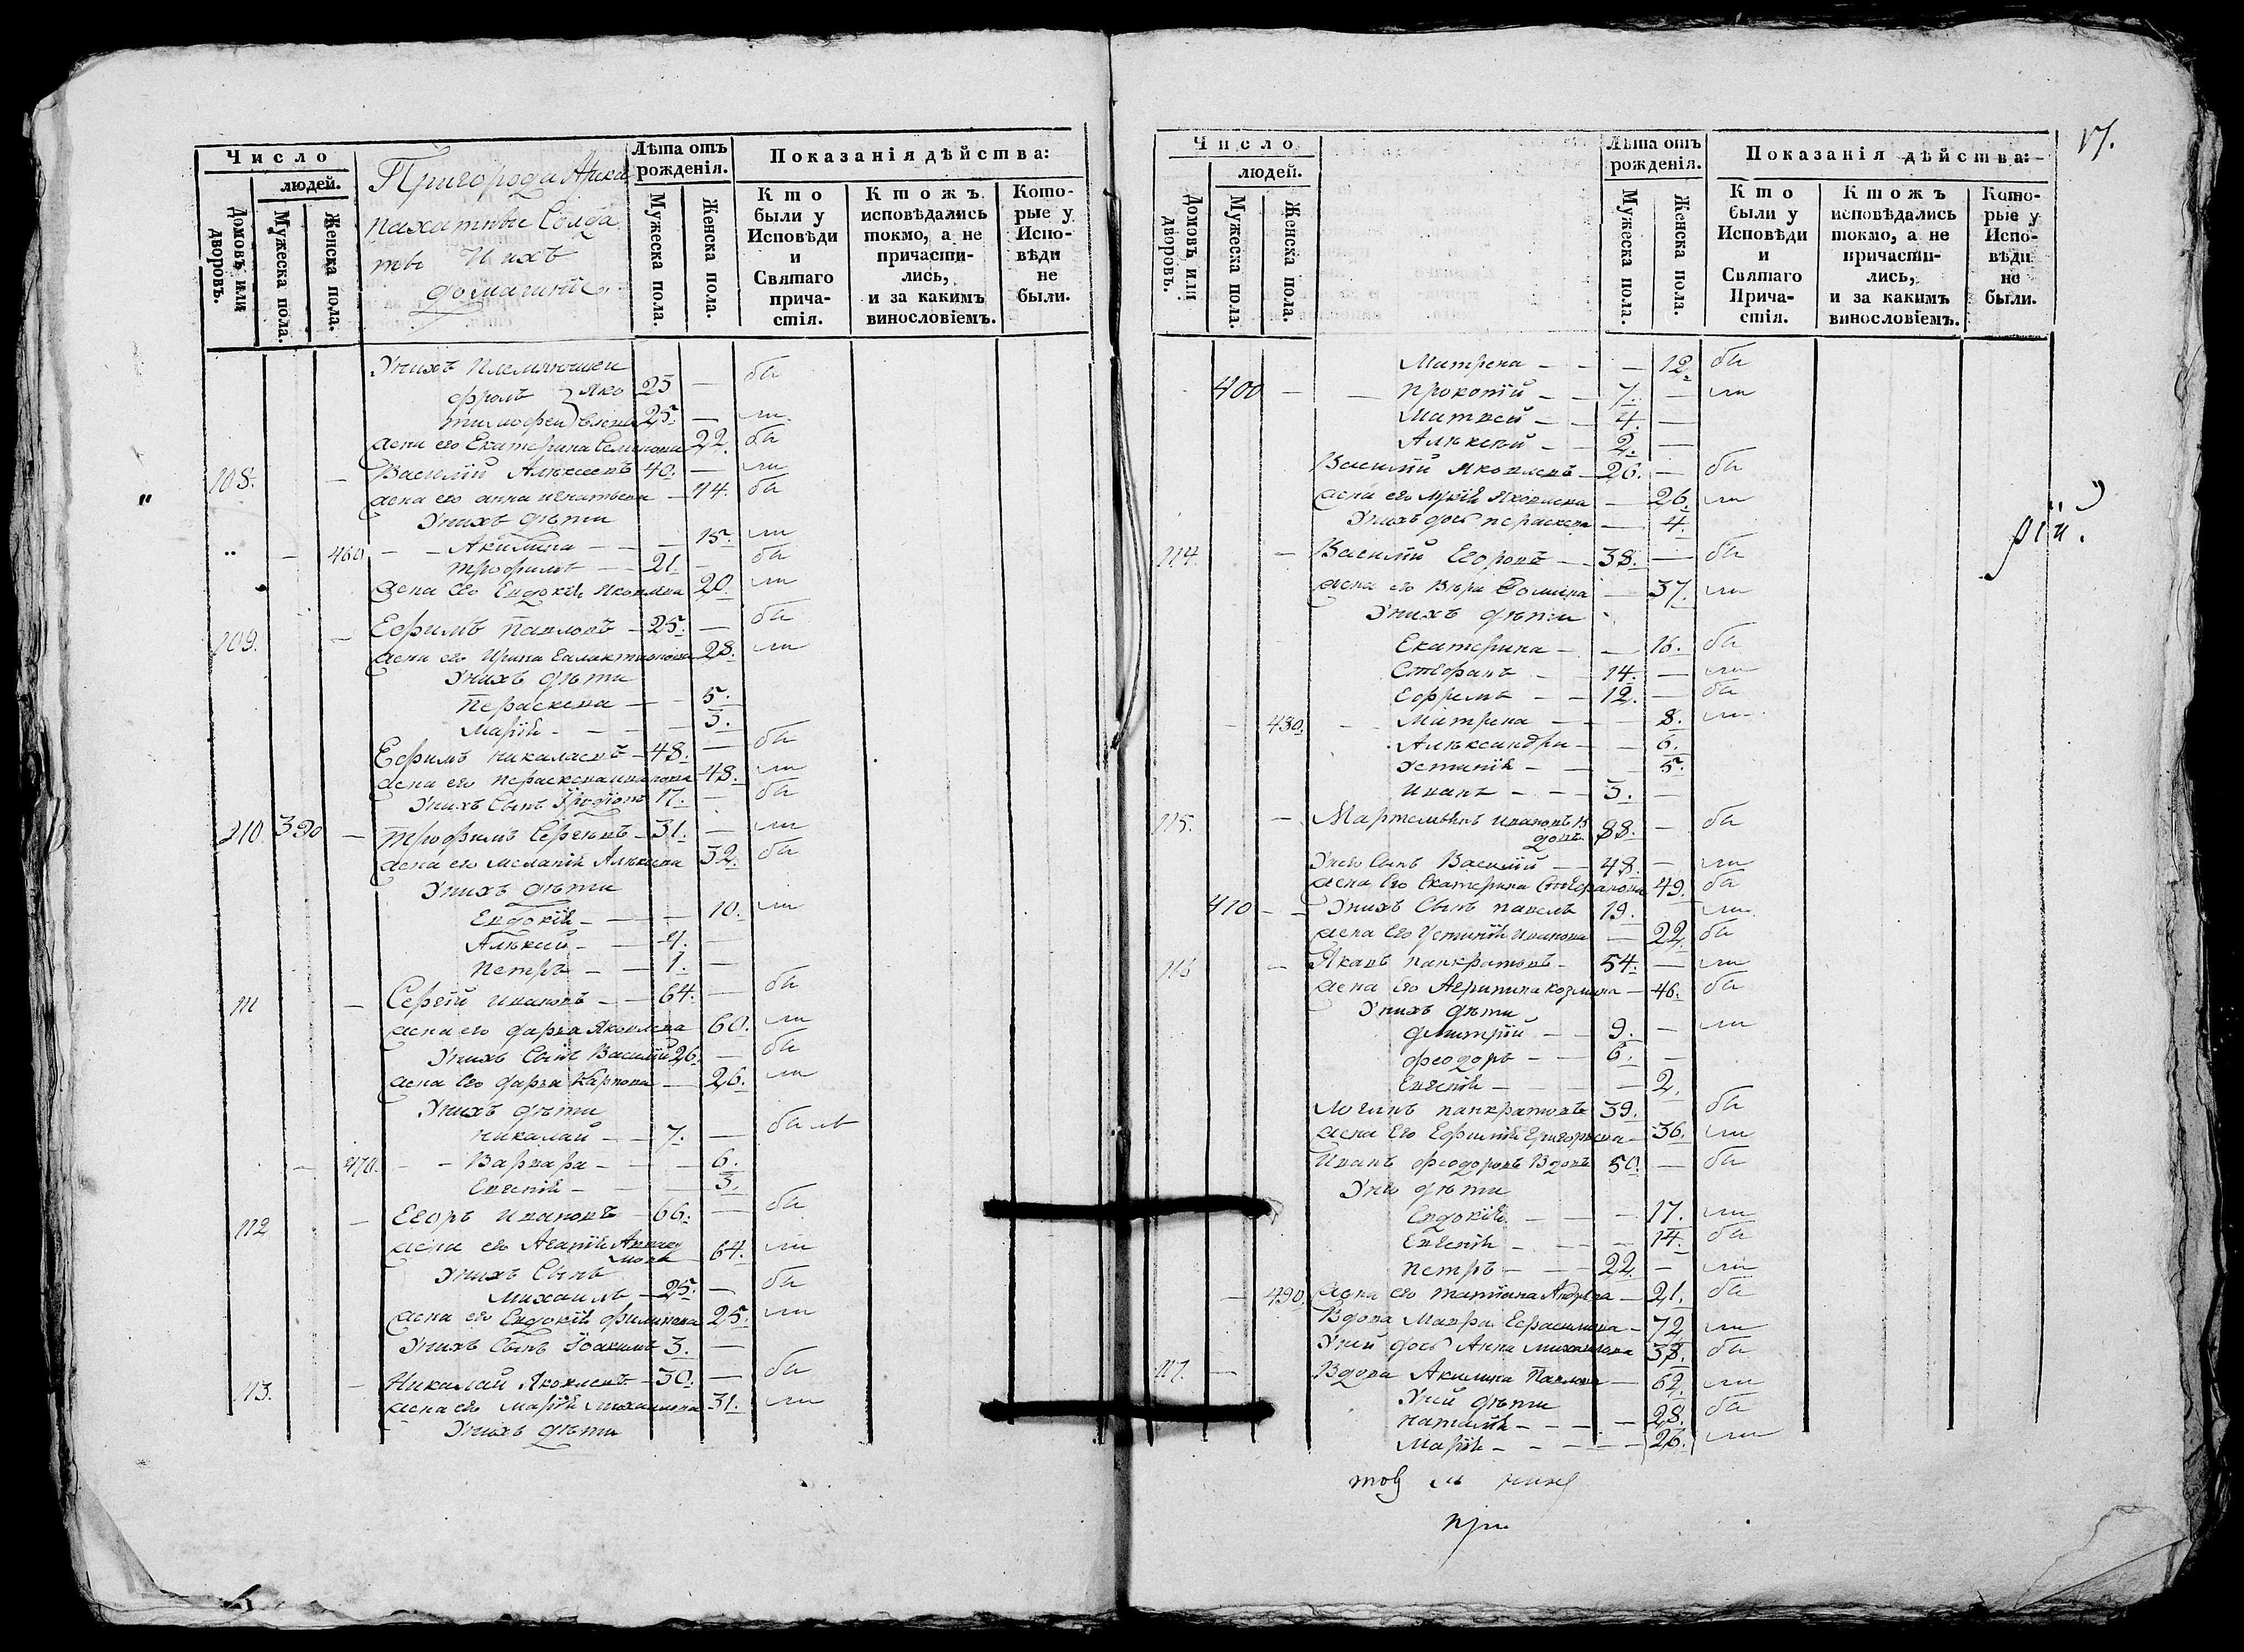 Число
людей.
Домовъ или дворовъ.
Мужеска пола.
Женска пола.
Пригорода
пахатные Солда
ты и ихъ
домашніе
Лѣта отъ рожденія.
Мужеска пола.
Женска пола.
Показанія дѣйства:
Кто были у Исповѣди и Святаго причастія.
Ктожъ исповѣдались токмо, а не причастились, и за какимъ винословіемъ.
Которые у Исповѣди не были.
Унихъ племянники
Фролъ Яко 23 — бы
Тимофей влевы 25. — ли
жена его Екатерина Семенова 22. бы
108. — Василій Алѣксеевъ 40. — ли
жена его анна игнатьева — 44. бы
Унихъ дѣти
— 460 — Акилина — — 15. ли
Трофимъ — 21. — бы
жена Его Евдокія Яковлева 20. ли
109. — Ефимъ Павловъ — 25. — бы
жена его Ирина Галактионова 28. ли
Унихъ дѣти
Пераскева — — 5.
Марія — — — 3.
Ефимъ Николаевъ — 48. — бы
жена его пераскева 48. ли
Унихъ Сынъ Иродіонъ 17. — бы
110. 390 — Трофимъ Сергѣевъ — 31. — ли
жена его меланія Алѣксеева 32. бы
Унихъ дѣти
Евдокія — — — 10. ли
Алѣксѣй — — 4. —
Петръ — — 1. —
111 — Сергѣй Ивановъ — — 64. — бы
жена его дарья Яковлева 60. ли
Унихъ Сынъ Василій 26. — бы
жена Его дарья Карпова — 26. ли
Унихъ дѣти
Николай — — 7. — былъ
— 470. — — Варвара — — — 6.
Евгенія — — — 3.
112 — Егоръ Ивановъ — 66. — бы
жена его Агапія 64. ли
Унихъ Сынъ
Михаилъ — 25. — бы
жена его Евдокія Филипова 25. ли
Унихъ Сынъ Іоакимъ 3. —
113. — Николай Яковлевъ — 30. — бы
жена его Марія Михаилова 31. ли
Унихъ дѣти
17.
Число
людей.
Домовъ или дворовъ.
Мужеска пола.
Женска пола.
Лѣта отъ рожденія.
Мужеска пола.
Женска пола.
Показанія дѣйства:
Кто были у Исповѣди и Святаго Причастія.
Ктожъ исповѣдались токмо, а не причастились, и за какимъ винословіемъ.
Которые у Исповѣди не были.
Матрена — — — 12. бы
400 — — Прокопій — — 7. — ли
Матвей — — 4. —
Алѣксѣй — 2. —
Василій Яковлевъ — 26. — бы
жена его Яковлева — 26. ли
Унихъ дочь пераскева — 4.
114. — Василій Егоровъ — 38. — бы
жена его Вѣра Фомина — 37. ли
Унихъ дѣти
Екатерина — — 16. бы
Стефанъ — — 14. — ли
Ефремъ — — 12. — бы
— 480. — Матрена — — — 8. ли
Алѣксандра — — 6.
Устинія — — 5.
Иванъ — — — 3. —
115. — Мартемьянъ Ивановъ В
довъ 88. — бы
Унего Сынъ Василій — — 48. — ли
жена Его Екатерина Стефанова 49. бы
410 — — Унихъ Сынъ павелъ 19. ли
жена Его Устинія Иванова — 22. бы
116 — Яковъ панкратовъ — 54. — ли
жена Его Агрипина козмина — 46. бы
Унихъ дѣти
дмитрій — — 9. — ли
феодоръ — — 6. —
Евгенія — — — 2.
Логинъ панкратовъ 39. бы
жена Его Ефимія Григорьева — 36. ли
Иванъ феодоровъ Вдовъ 50. — бы
Унего дѣти
Евдокія — — — 17. ли
Евгенія — — — 14. бы
Петръ — — — 22. — ли
— 490. жена его татіана Андрѣева — 21. бы
Вдова Мавра — 72 ли
Уней дочь Анна Михаилова 38. бы
117. — Вдова Акилина Павлова — 62. ли
Уней дѣти
Наталія — — — — 28. бы
Марія — — — — 26. ли
рій.